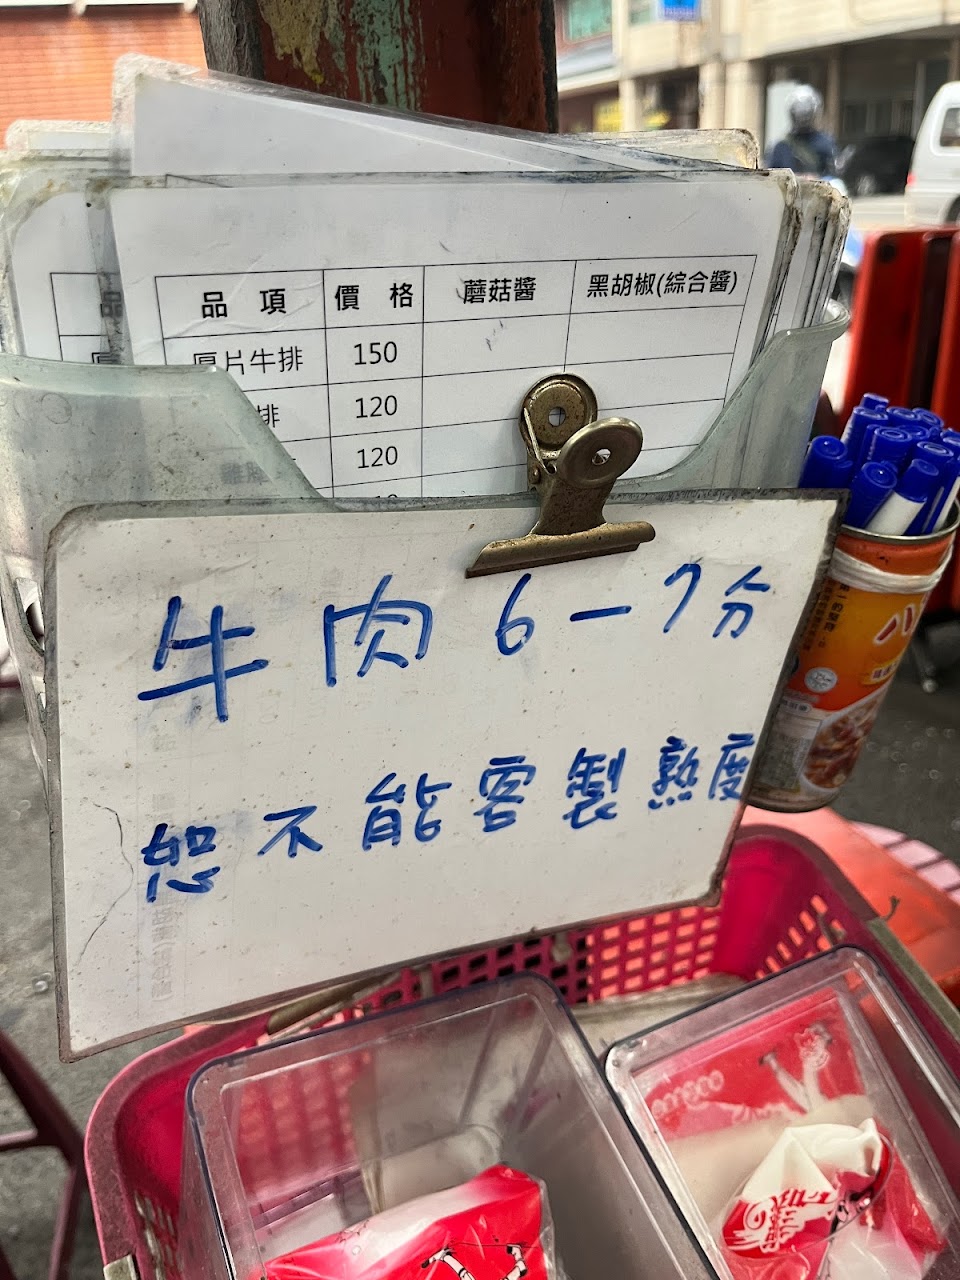 品 項 價 格 蘑菇醬 黑胡椒(綜合醬)
厚片牛排 150
排 120
120
牛肉6-7分
恕不能客製熟度